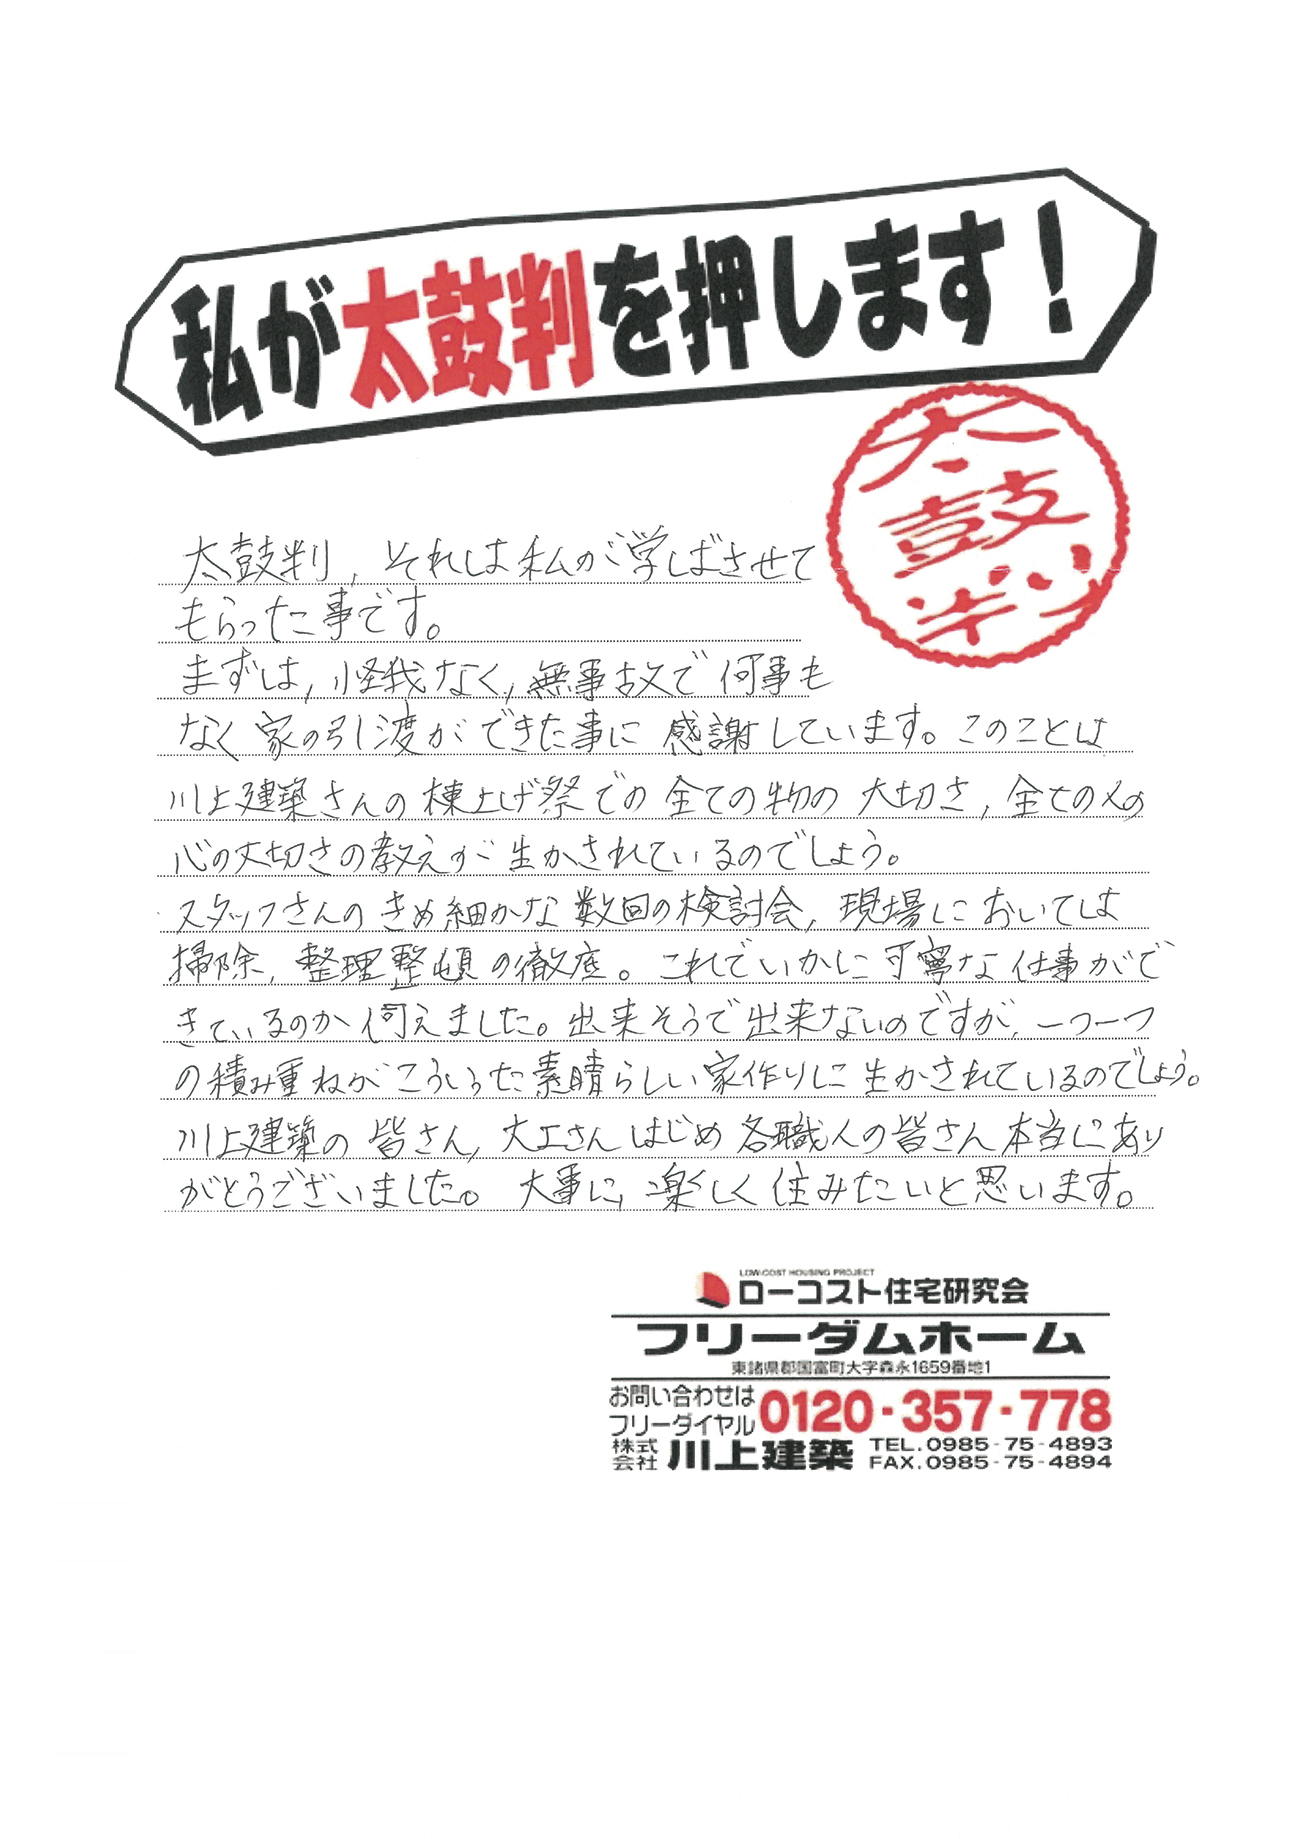 私が太鼓判を押します！
太鼓判
太鼓判，それは私が学ばさせて
もらった事です。
まずは，怪我なく，無事故で何事も
なく家の引渡ができた事に感謝しています。このことは
川上建築さんの棟上げ祭での全ての物の大切さ，全ての人の
心の大切さの教えが生かされているのでしょう。
スタッフさんのきめ細かな数回の検討会，現場においては
掃除，整理整頓の徹底。これでいかに丁寧な仕事がで
きているのか伺えました。出来そうで出来ないのですが，一つ一つ
の積み重ねがこういった素晴らしい家作りに生かされているのでしょう。
川上建築の皆さん，大工さんはじめ各職人の皆さん本当にあり
がとうございました。大事に，楽しく住みたいと思います。
LOW-COST HOUSING PROJECT
ローコスト住宅研究会
フリーダムホーム
東諸県郡国富町大字森永1659番地1
お問い合わせは
フリーダイヤル 0120-357-778
株式会社 川上建築 TEL.0985-75-4893
FAX.0985-75-4894